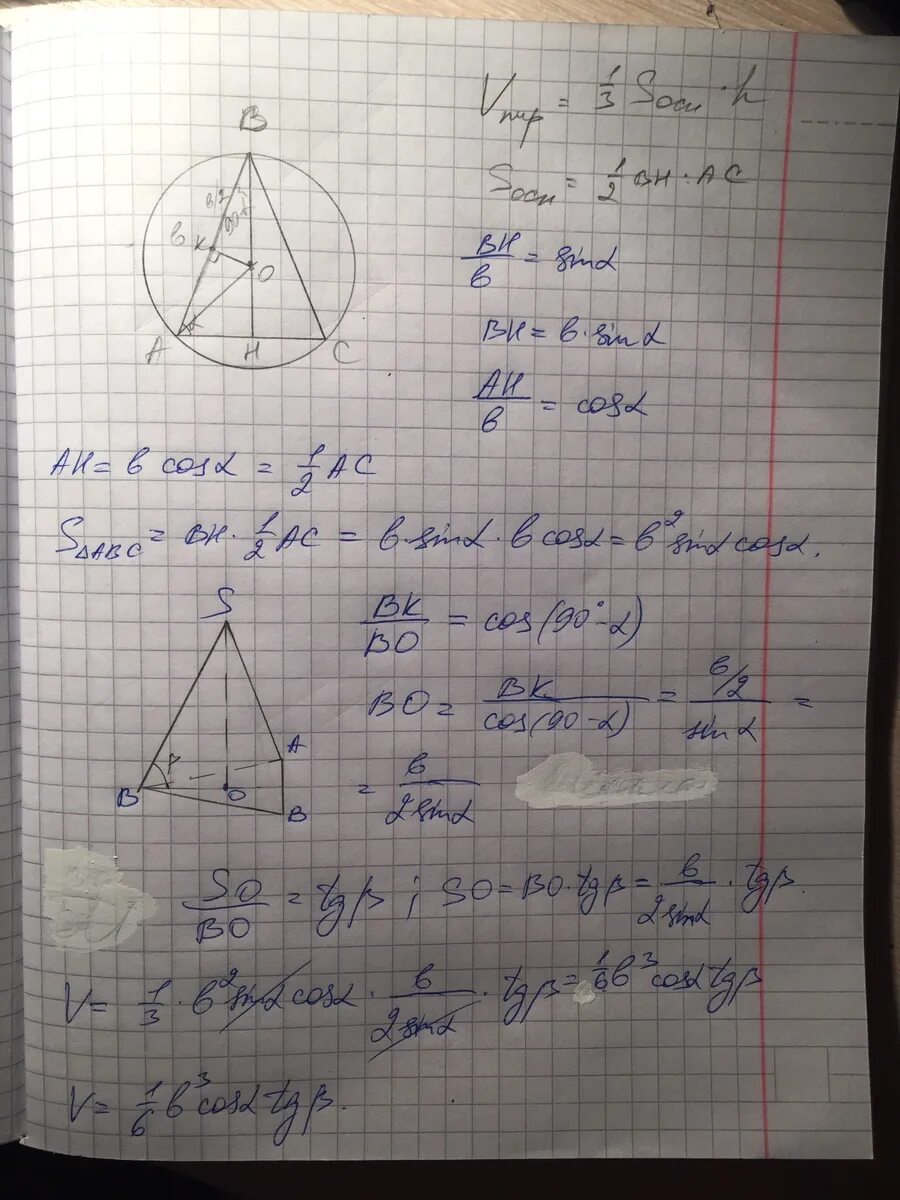 Vпир = 1/3 Sосн · h
Sосн = 1/2 BH · AC
B
в/2
90-α
в
K
O
α
A
H
C
BH/в = sinα
BH = в · sinα
AH/в = cosα
AH = в cosα = 1/2 AC
S△ABC = BH · 1/2 AC = в · sinα · в cosα = в² sinα cosα.
S
β
A
B
O
B
BK/BO = cos(90° - α)
BO = BK/cos(90-α) = в/2/sinα =
= в/2sinα
SO/BO = tgβ ; SO = BO · tgβ = в/2sinα · tgβ.
V = 1/3 · в² sinα cosα · в/2sinα · tgβ = 1/6 в³ cosα tgβ
V = 1/6 в³ cosα tgβ.